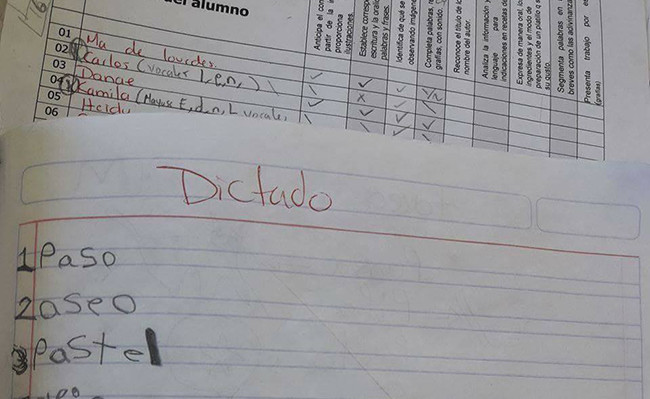 del alumno
Anticipa el con
partir de la i
proponga
ilustraciones.
Establece corresp
escritura y la oral
palabras y frases.
Identifica de que se
observando imágene
Completa palabras,
grafías, con sonido.
Reconoce el título de lo
nombre del autor.
Analiza la información y
lenguaje para
indicaciones en recetas de
Expresa de manera oral, lo
ingredientes y el modo de
preparación de un platillo o s
su gusto.
Segmenta palabras en
breves como las adivinanza
Presenta trabajo por es
(grafías)
01 Ma de lourdes
02 Carlos (vocales L,e,n, )
03 Danae
04 Kamila (Mayus E,d,n,L vocales
05 Heidy
06
Dictado
1 Paso
2 aseo
Pastel